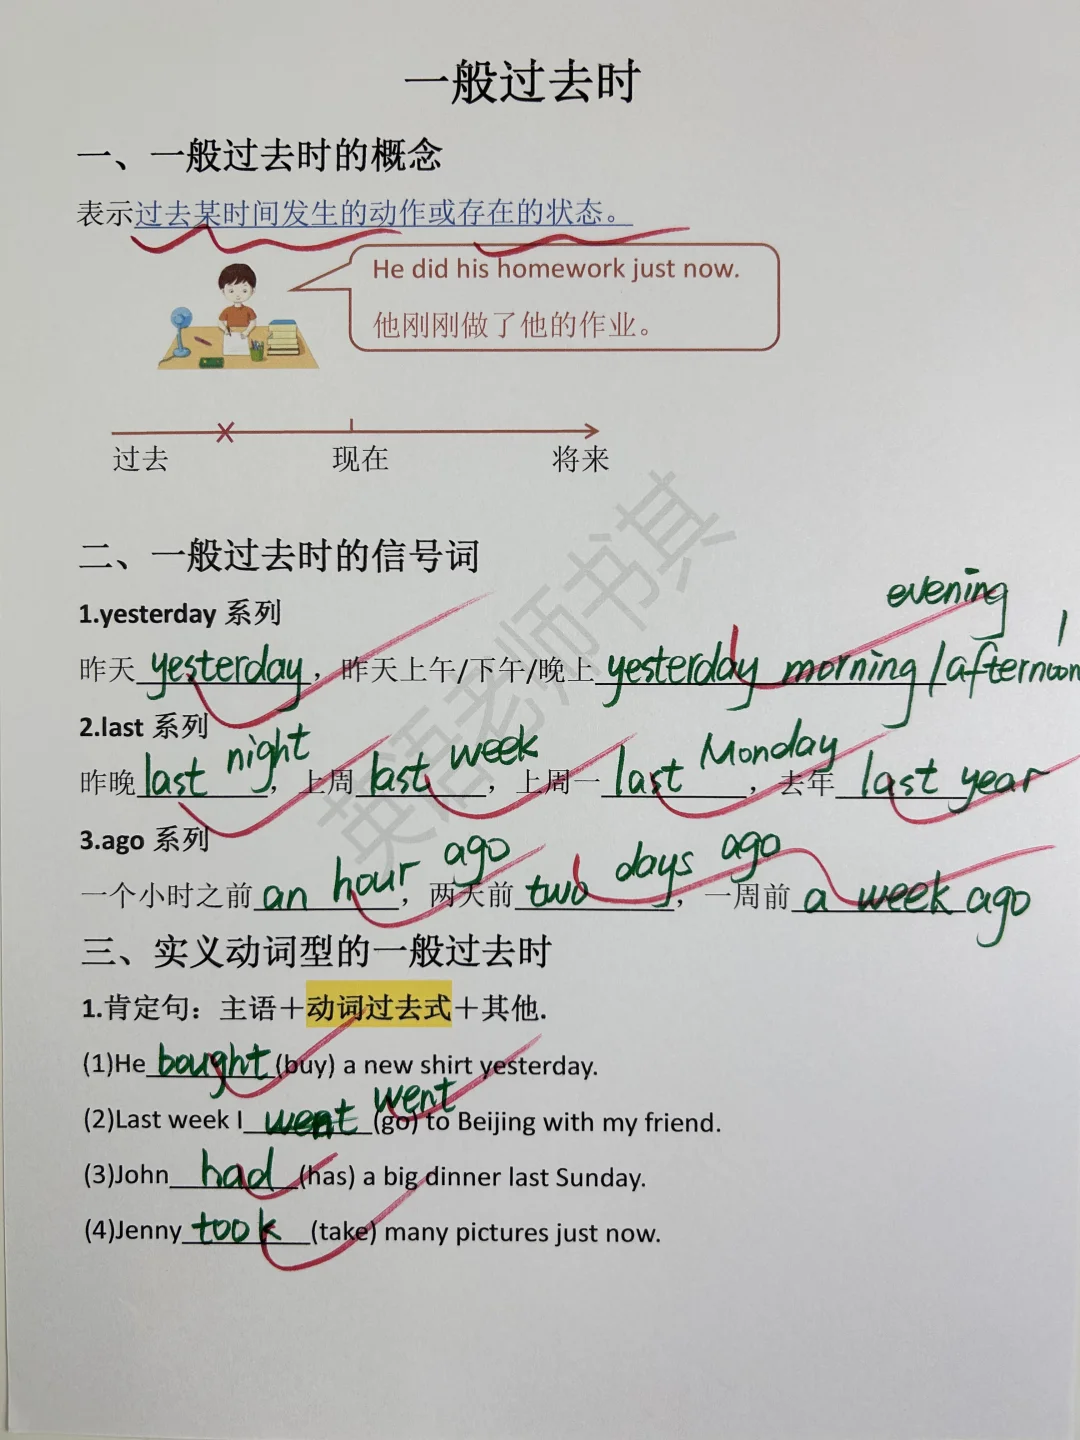 一般过去时
一、一般过去时的概念
表示过去某时间发生的动作或存在的状态。
He did his homework just now.
他刚刚做了他的作业。
过去 现在 将来
二、一般过去时的信号词
1.yesterday 系列
昨天 yesterday，昨天上午/下午/晚上 yesterday morning/afternoon/evening
2.last 系列
昨晚 last night，上周 last week，上周一 last Monday，去年 last year
3.ago 系列
一个小时之前 an hour ago，两天前 two days ago，一周前 a week ago
三、实义动词型的一般过去时
1.肯定句：主语＋动词过去式＋其他.
(1)He bought (buy) a new shirt yesterday.
(2)Last week I went went (go) to Beijing with my friend.
(3)John had (has) a big dinner last Sunday.
(4)Jenny took (take) many pictures just now.
英语老师书淇